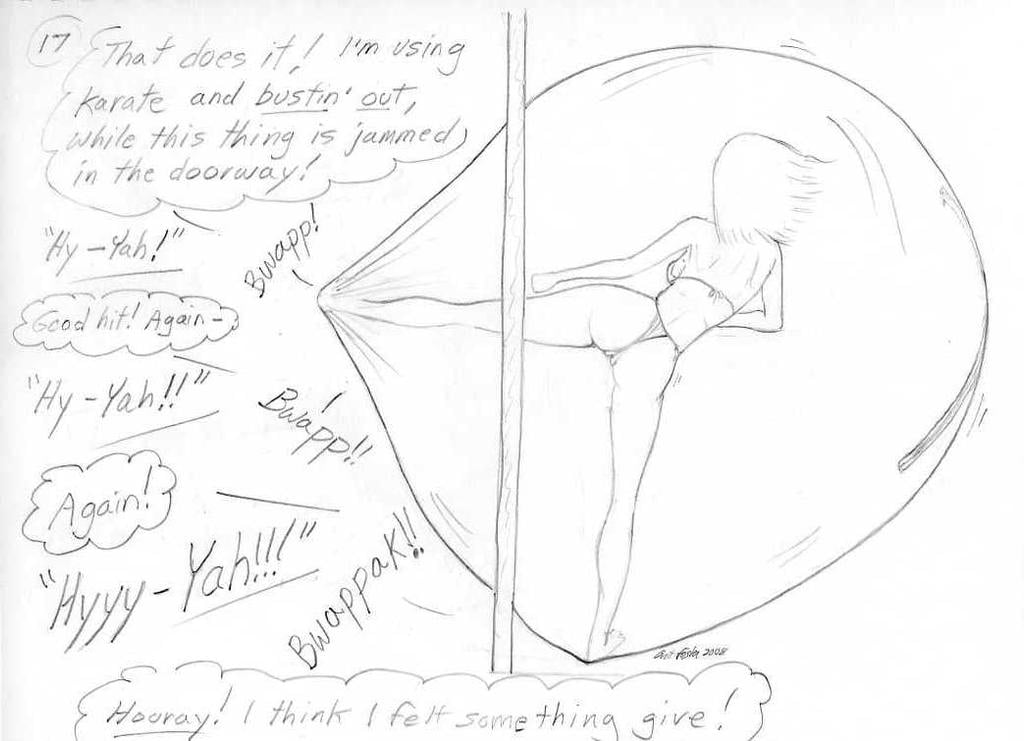 17
That does it! I'm using
karate and bustin' out,
while this thing is jammed
in the doorway!
"Hy-Yah!"
Bwapp!
Good hit! Again-
"Hy-Yah!!"
Bwapp!!
Again!
"Hyyy-Yah!!!"
Bwappak!!
2008
Hooray! I think I felt something give!